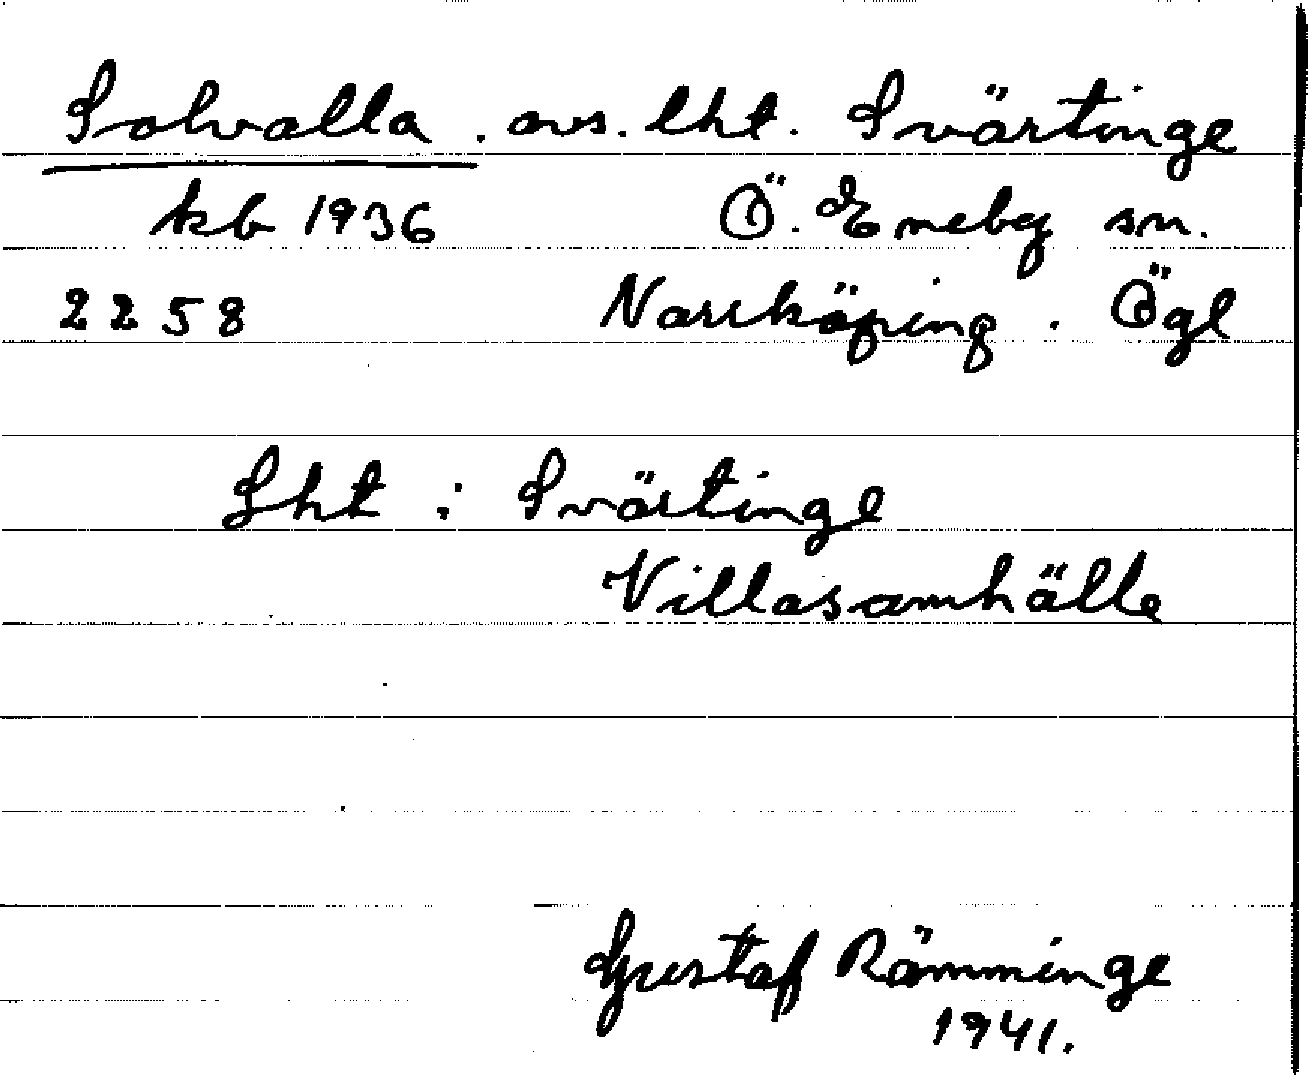 Solvalla . avs. lht. Svärtinge
kb 1936 Ö. Eneby sn.
2258 Norrköping . Ögl
Lht : Svärtinge
Villasamhälle
Gustaf Rämminge
1941.